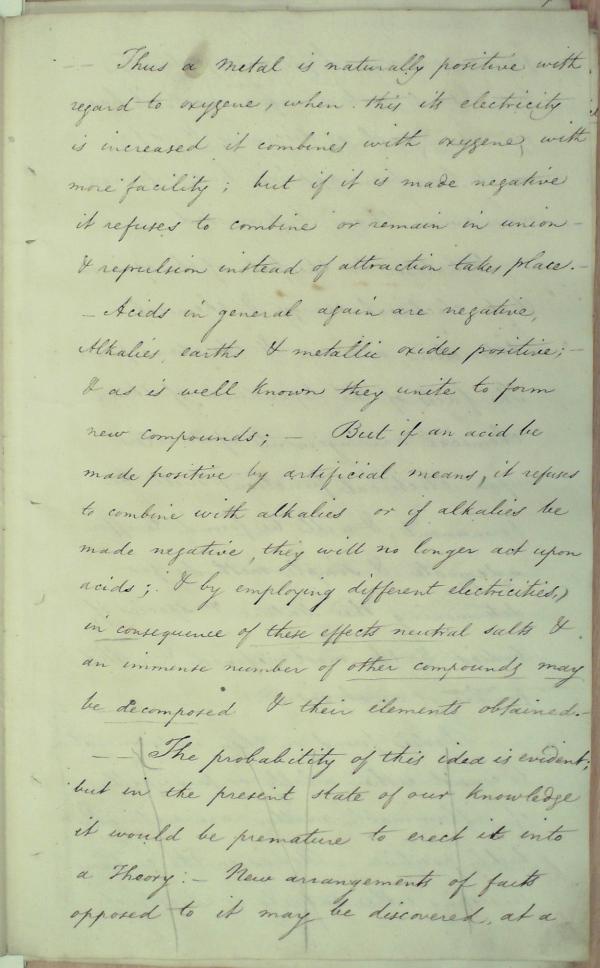 -- Thus a metal is naturally positive with
regard to oxygene, when this its electricity
is increased it combines with oxygene, with
more facility; but if it is made negative
it refuses to combine or remain in union -
& repulsion instead of attraction takes place. -
- Acids in general again are negative,
Alkalies, earths & metallic oxides positive; -
& as is well known they unite to form
new compounds; - But if an acid be
made positive by artificial means, it refuses
to combine with alkalies or if alkalies be
made negative, they will no longer act upon
acids; & by employing different electricities,
in consequence of these effects neutral salts &
an immense number of other compounds may
be decomposed & their elements obtained. -
-- The probability of this idea is evident;
but in the present state of our knowledge
it would be premature to erect it into
a Theory: - New arrangements of facts
opposed to it may be discovered, at a